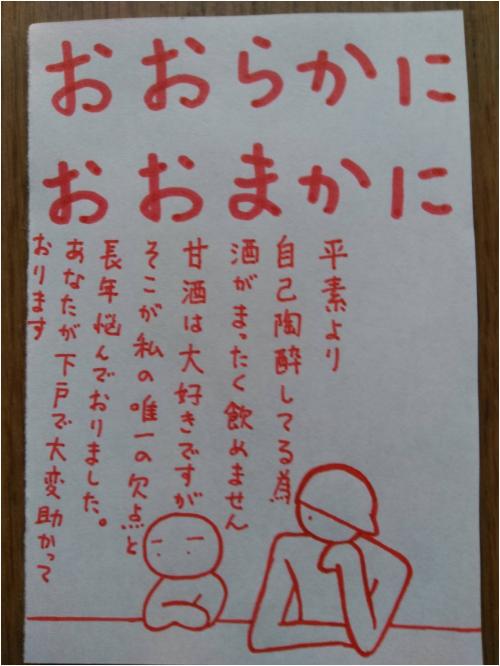 おおらかに
おおまかに
平素より
自己陶酔してる為
酒がまったく飲めません
甘酒は大好きですが
そこが私の唯一の欠点と
長年悩んでおりました。
あなたが下戸で大変助かって
おります